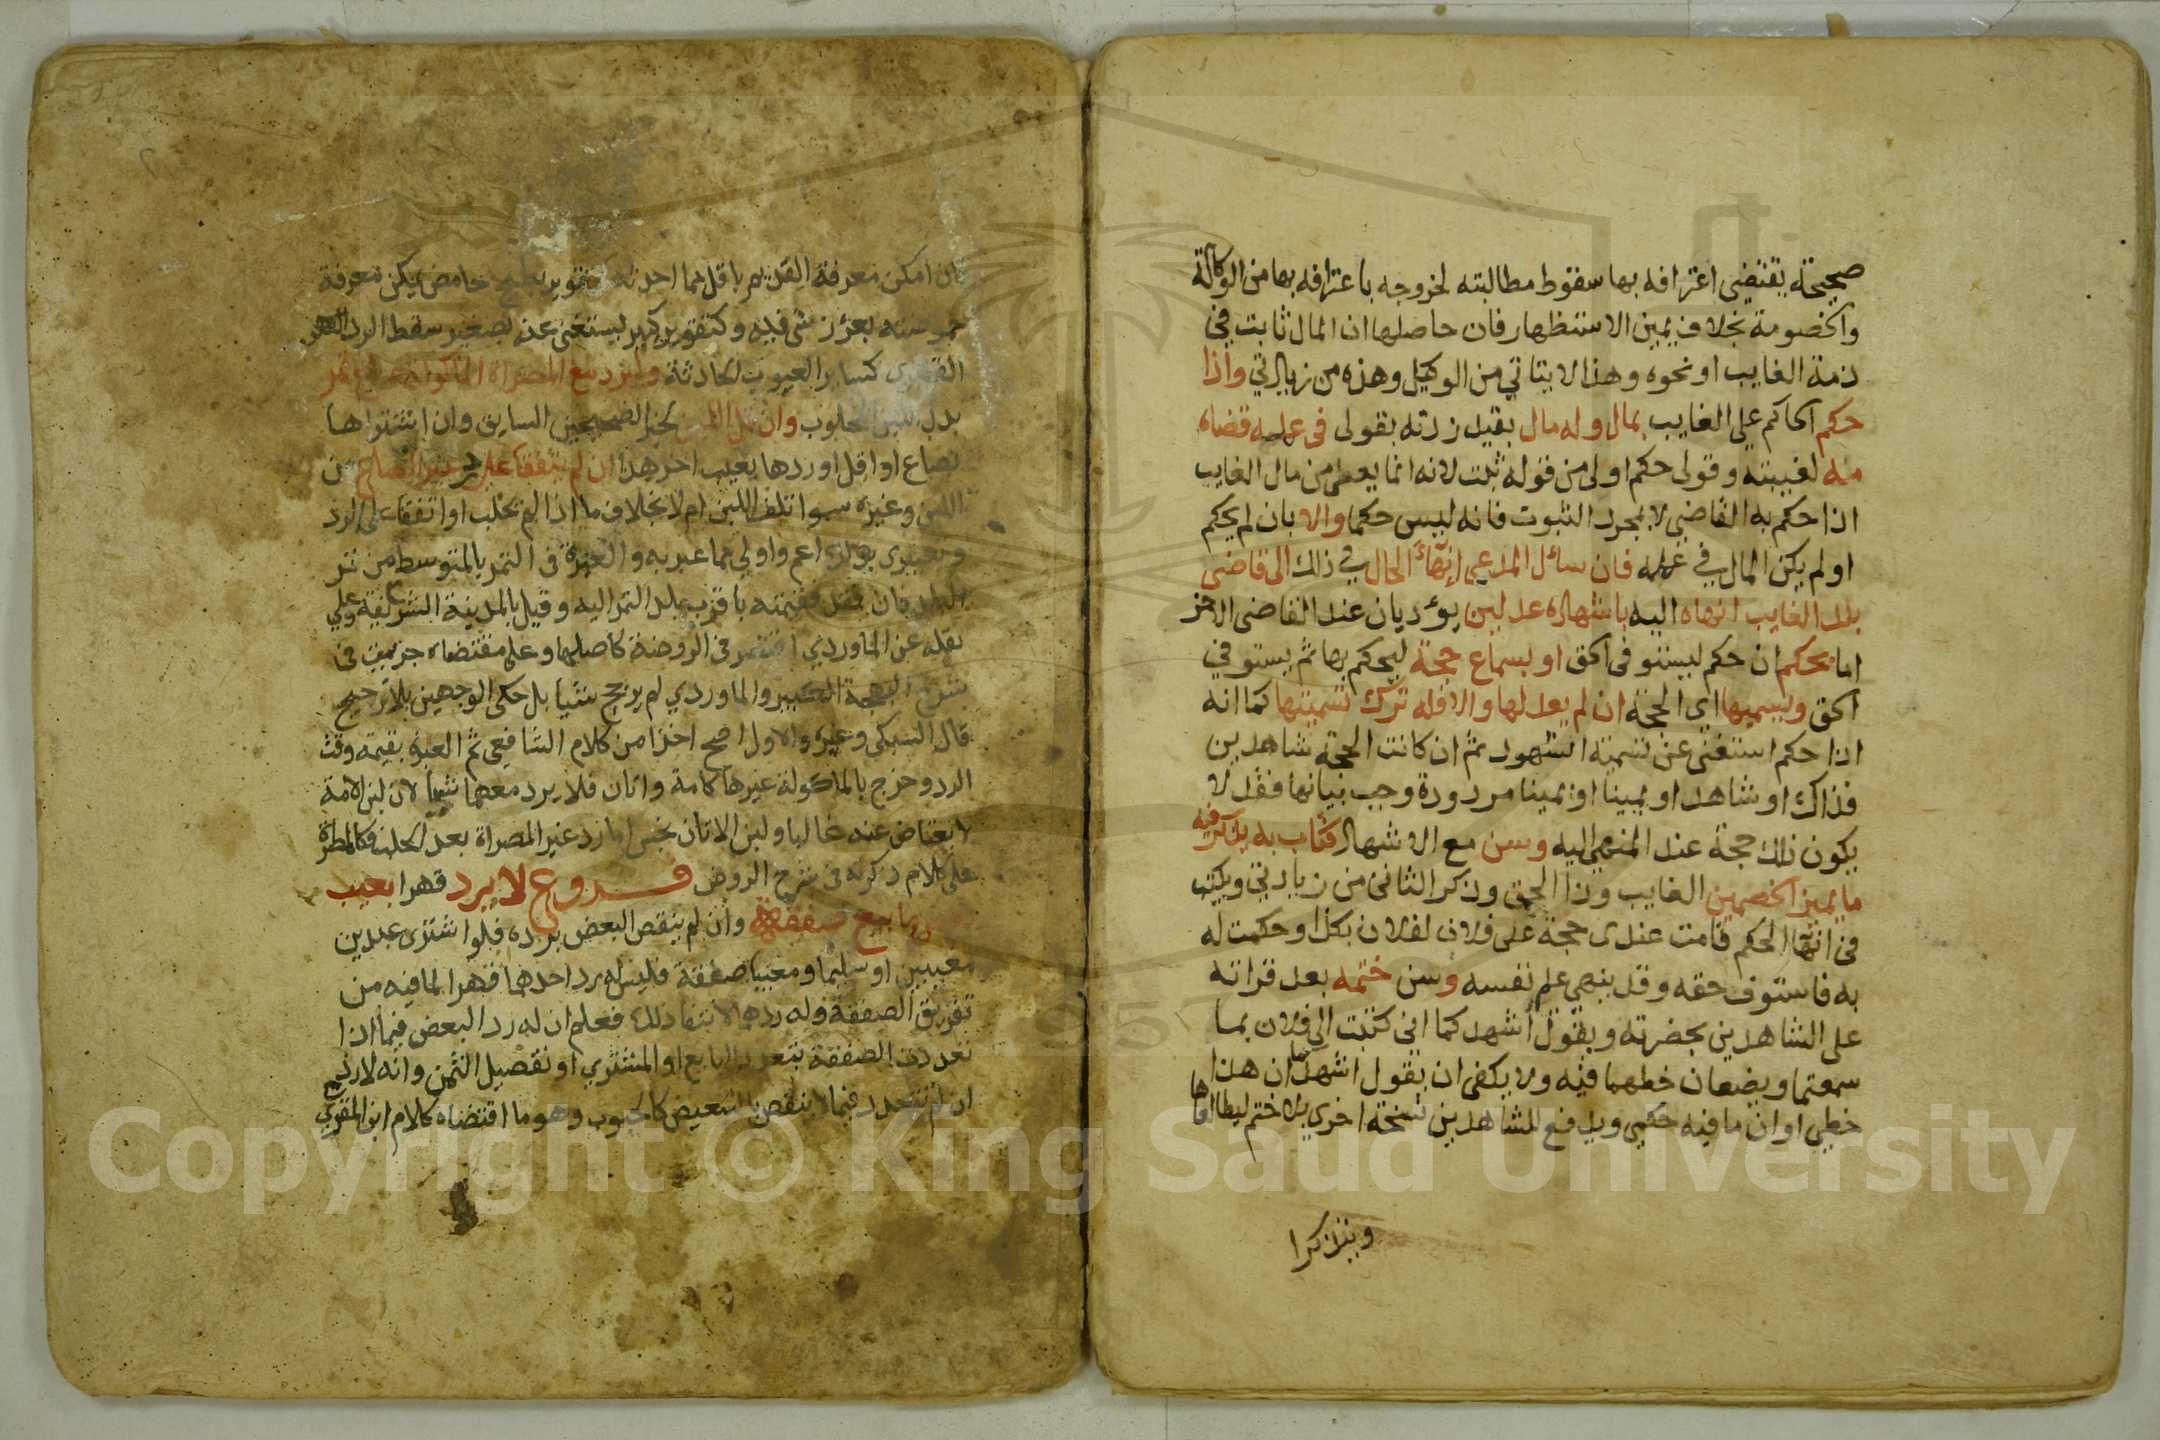 صحيحة يقتضي اعترافه بها سقوط مطالبته لخروجه باعترافه بها من الوكالة
والخصومة بخلاف يمين الاستظهار فان حاصلها ان المال ثابت في
ذمة الغايب او نحوه وهذا لا يتاتي من الوكيل وهذه من زيادتي واذا
حكم الحاكم علي الغايب بمال وله مال بقيد زدته بقولي في عمله قضاه
منه لغيبته وقولي حكم اولي من قوله ثبت لانه انما يعطي من مال الغايب
اذا حكم به القاضي لا بمجرد الثبوت فانه ليس حكما والا بان لم يحكم
او لم يكن المال في عمله فان سائل المدعي إنهاء الحال في ذلك الى قاضي
بلد الغايب انهاه اليه باشهاد عدلين يؤديان عند القاضي الاخر
اما بحكم ان حكم ليستوفي الحق او بسماع حجة ليحكم بها ثم يستوفي
الحق وليسميها اي الحجة ان لم يعدلها والا فله ترك تسميتها كما انه
اذا حكم استغنى عن تسمية الشهود ثم ان كانت الحجة شاهدين
فذاك او شاهدا ويمينا او يمينا مردودة وجب بيانها فقد لا
يكون ذلك حجة عند المنهي اليه وسن مع الاشهاد كتاب به يذكر فيه
ما يميز الخصمين الغايب وذا الحق وذكر الثاني من زيادتي ويكتب
في انهاء الحكم قامت عندي حجة على فلان لفلان بكذا وحكمت له
به فاستوف حقه وقد ينهي علم نفسه وسن ختمه بعد قراته
على الشاهدين بحضرته ويقول أشهدكما اني كتبت الى فلان بما
سمعتما ويضعان خطهما فيه ولا يكفي ان يقول اشهدكما ان هذا
خطي او ان ما فيه حكمي ويدفع للشاهدين نسخة اخرى بلا ختم ليطالعاها
ويتذكرا
فان امكن معرفة القديم باقل مما احدثه كتقوير بطيخ حامض يمكن معرفة
حموضته بغرز شي فيه وكتقوير كبير ليستغنى عنه بصغير سقط الرد
القهري كساير العيوب الحادثة وليرد مع المصراة الماكولة صاع تمر
بدل اللبن المحلوب وان قل اللبن لخبر الصحيحين السابق وان اشتراها
بصاع او اقل او ردها بعيب اخر هذا ان لم يتفقا على رد غير الصاع من
اللبن وغيره سوا تلف اللبن ام لا بخلاف ما اذا لم تحلب او اتفقا على الرد
وتعبيري بذلك اعم واولي مما عبر به والعبرة في التمر بالمتوسط من تمر
البلد فان فقد فقيمته باقرب بلد التمر اليه وقيل بالمدينة الشريفة وعلي
نقله عن الماوردي اقتصر في الروضة كاصلها وعلى مقتضاه جريت في
شرح البهجة الكبير والماوردي لم يرجح شيا بل حكى الوجهين بلا ترجيح
قال السبكي وغيره والاول اصح اخذا من كلام الشافعي ثم العبرة بقيمة وقت
الرد وخرج بالماكولة غيرها كامة واتان فلا يرد معهما شيا لان لبن الامة
لا يعتاض عنه غالبا ولبن الاتان نجس اما رد غير المصراة بعد الحلب فكالمصراة
على كلام ذكرته في شرح الروض فروع لا يرد قهرا بعيب
بعض ما بيع صفقة وان لم ينقص البعض برده فلو اشترى عبدين
معيبين او سليما ومعيبا صفقة فليس له رد احدهما قهرا لما فيه من
تفريق الصفقة وله ردهما لانتفا ذلك فعلم ان له رد البعض فيما اذا
تعددت الصفقة بتعدد البايع او المشتري او تفصيل الثمن وانه لا رد
ان لم تتعدد فيما لا ينقص بالتبعيض كالحبوب وهو ما اقتضاه كلام ابن المقري
Copyright © King Saud University